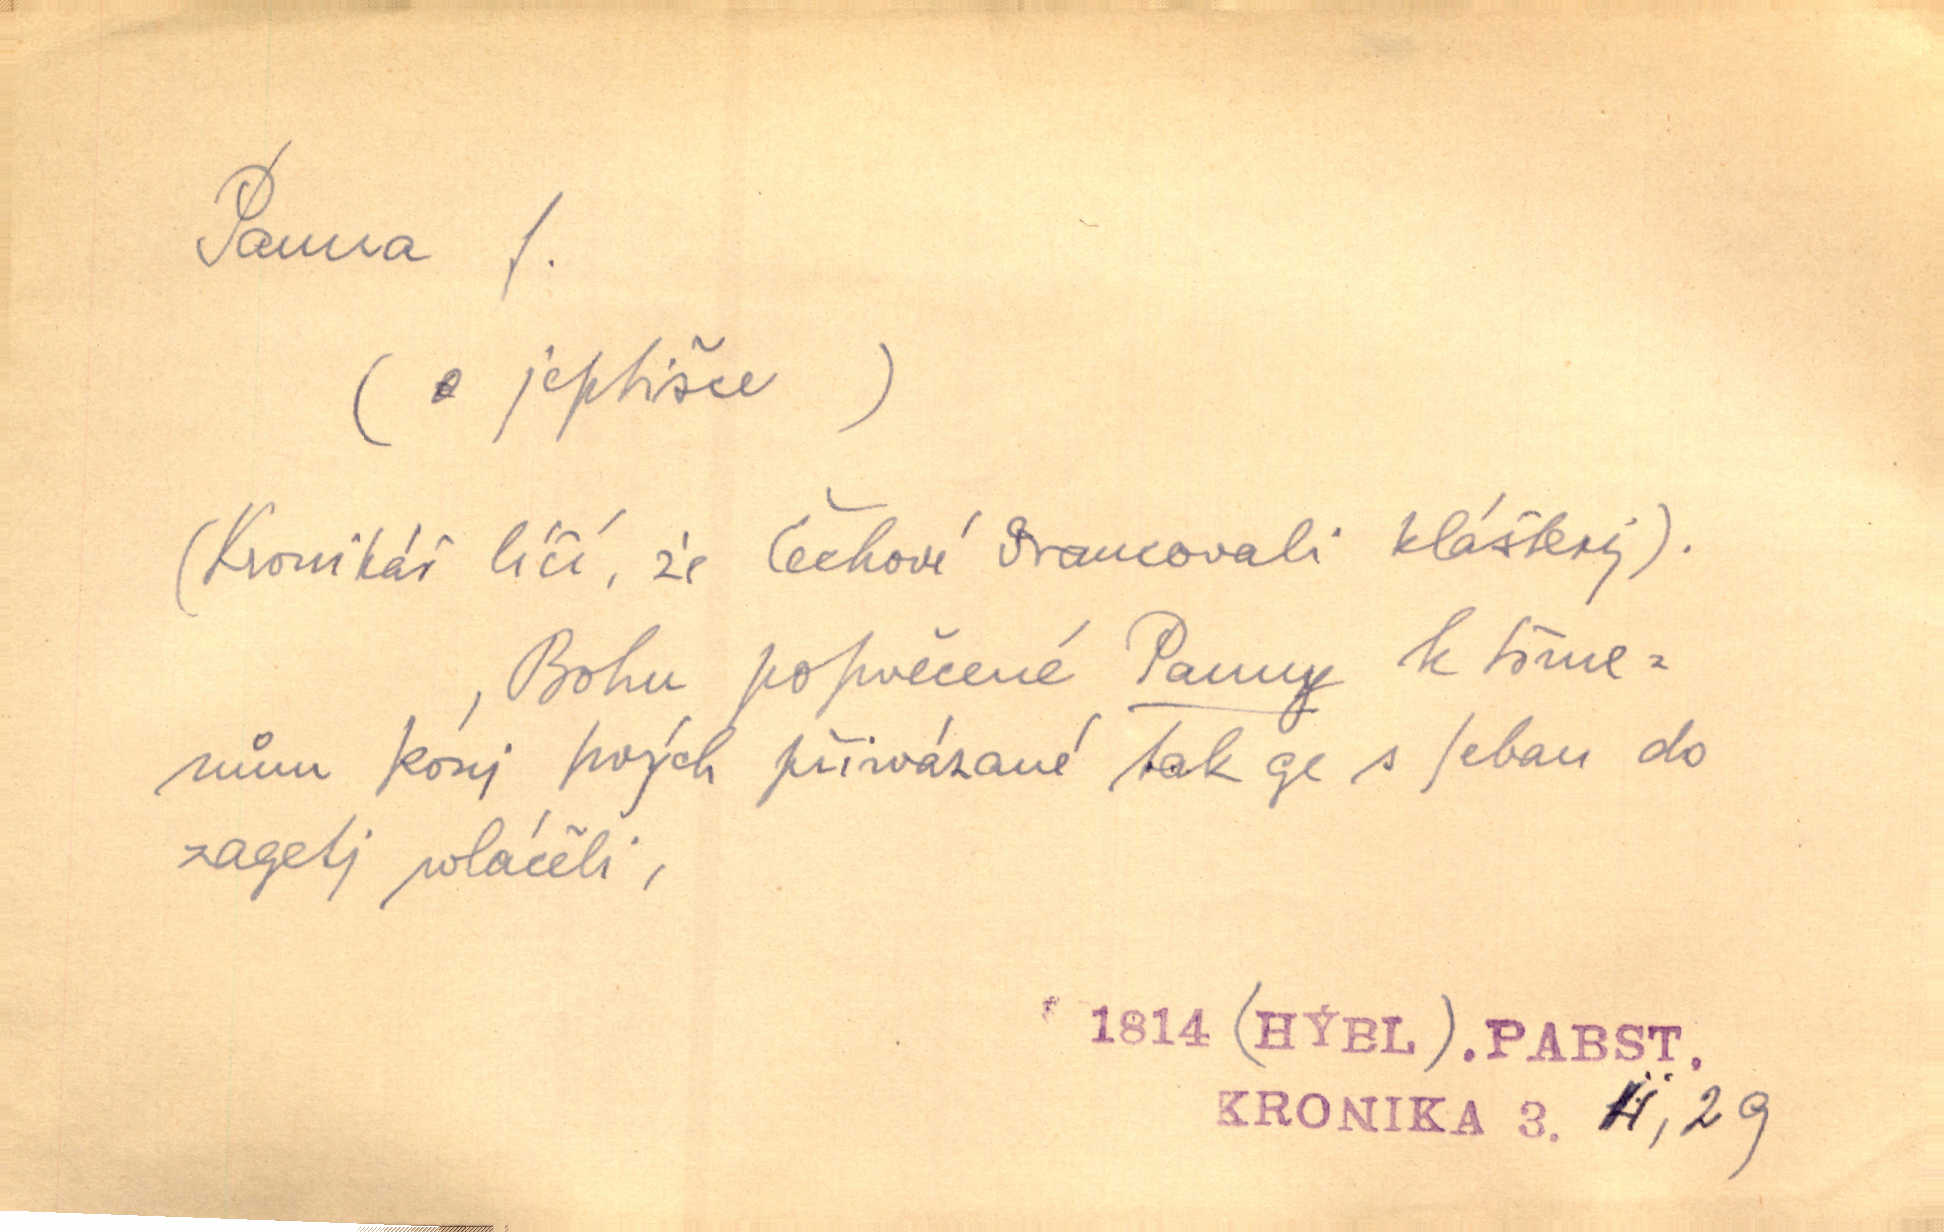 Panna f.
(o jeptišce)
(Kronikář líčí, že Čechové drancovali kláštery).
, Bohu poſwěcené Panny k třme-
nům konj ſwých přiwázané tak ge s ſebau do
zagetj wláčěli,
1814 (HÝBL). PABST.
KRONIKA 3. II, 29